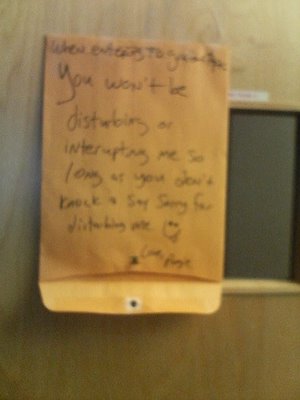 When
You won't be
disturbing or
interupting me so
long as you don't
knock & say sorry for
disturbing me
Love,